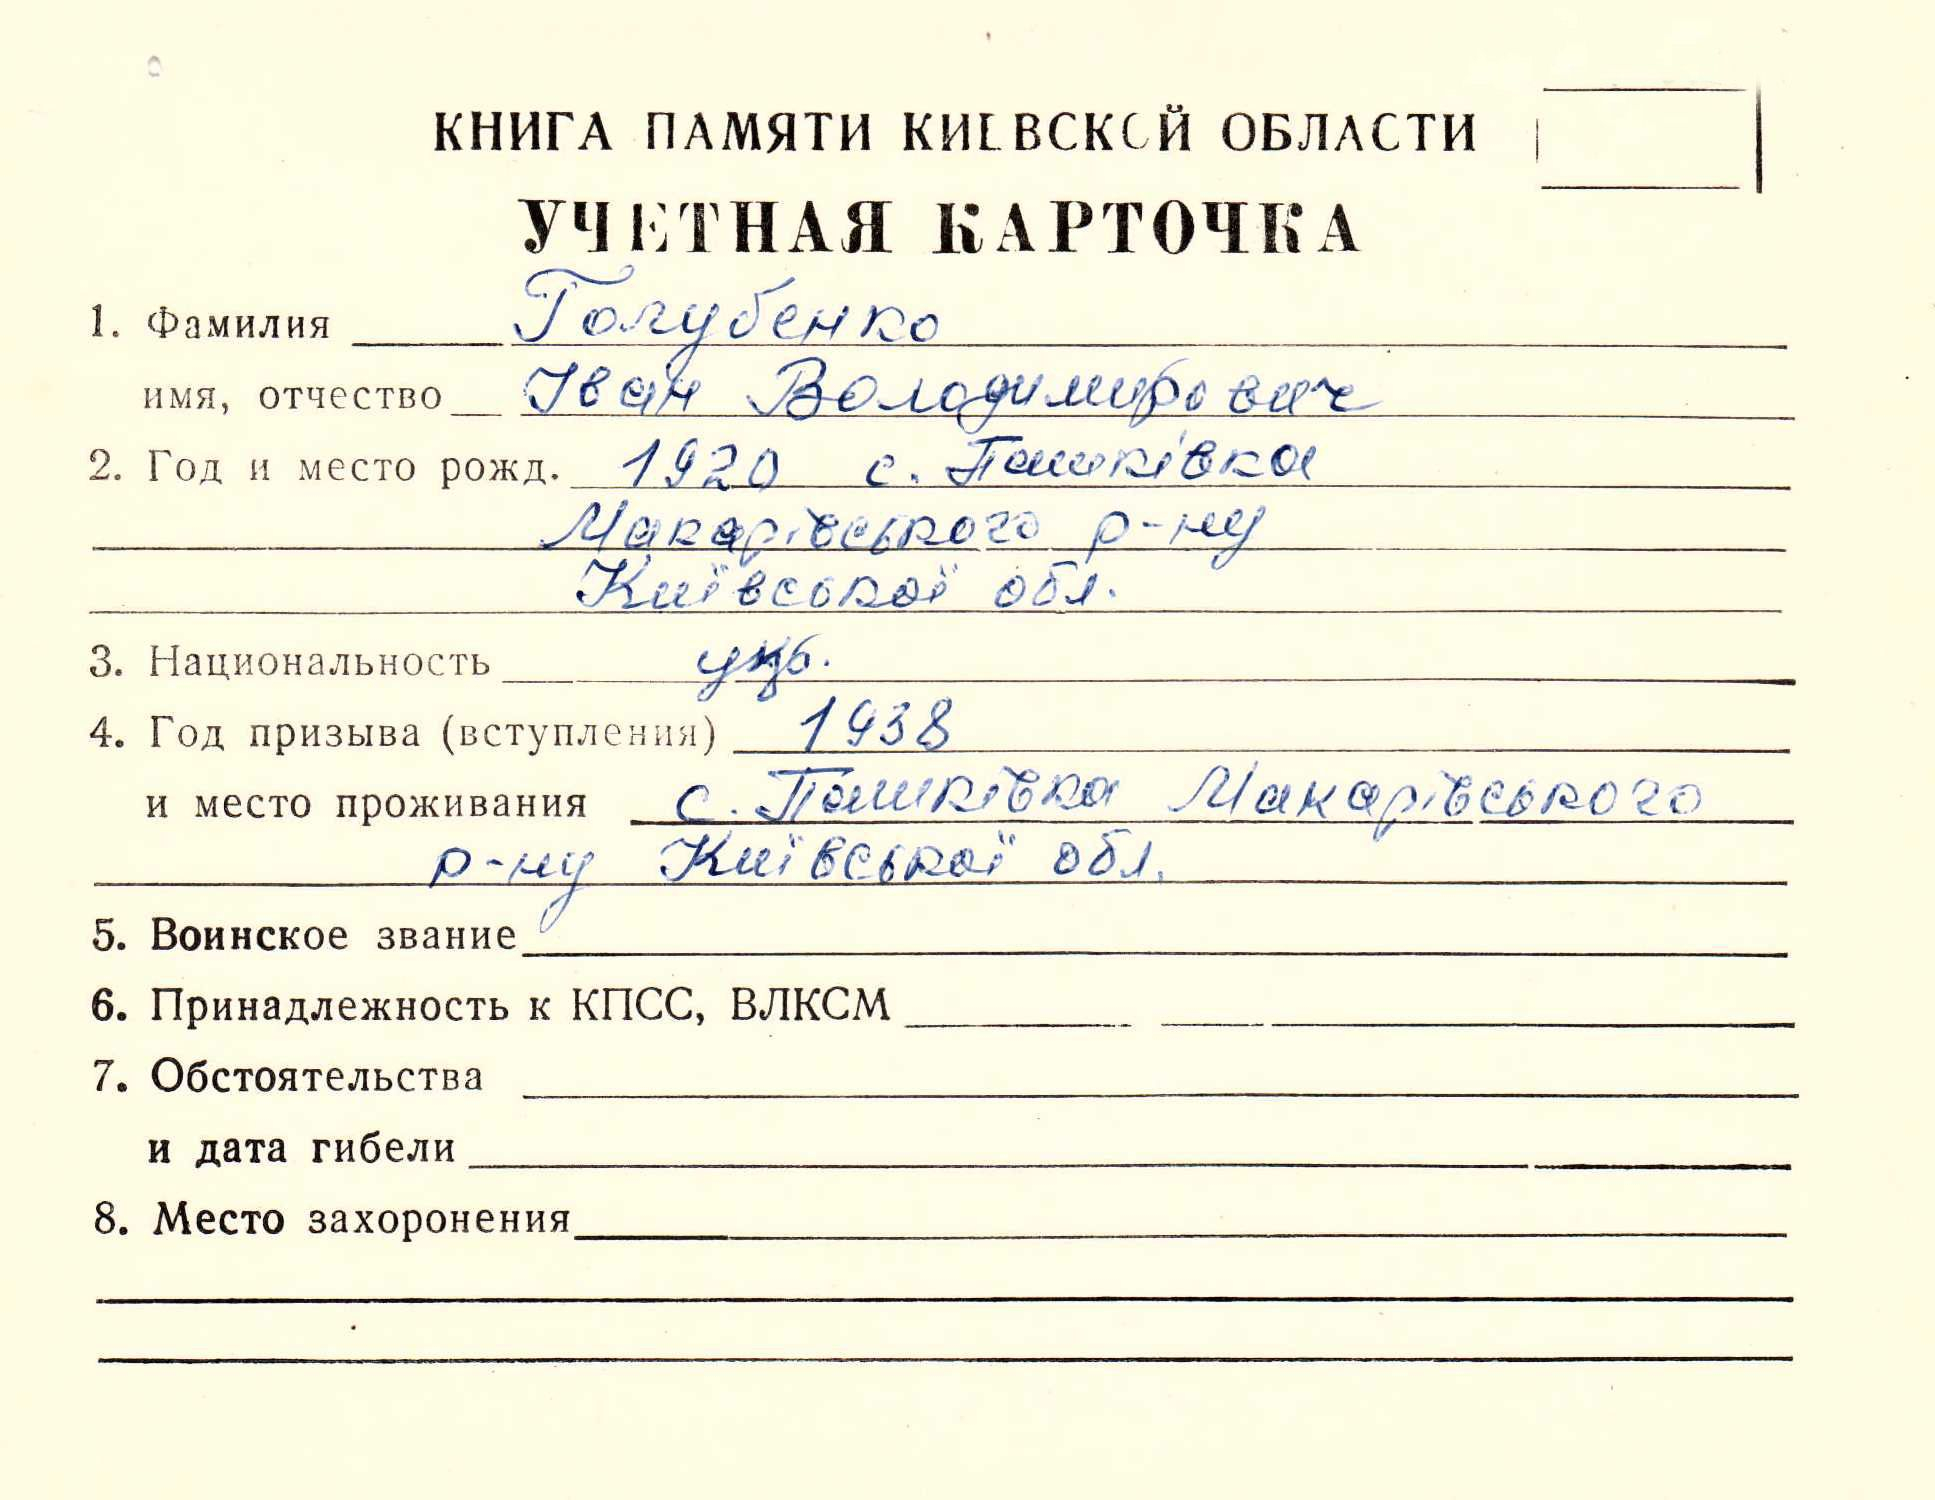 КНИГА ПАМЯТИ КИЕВСКОЙ ОБЛАСТИ
УЧЕТНАЯ КАРТОЧКА
1. Фамилия Голубенко
имя, отчество Іван Володимирович
2. Год и место рожд. 1920 с. Пашківка
Макарівського р-ну
Київської обл.
3. Национальность укр.
4. Год призыва (вступления) 1938
и место проживания с. Пашківка Макарівського
р-ну Київської обл.
5. Воинское звание
6. Принадлежность к КПСС, ВЛКСМ
7. Обстоятельства
и дата гибели
8. Место захоронения